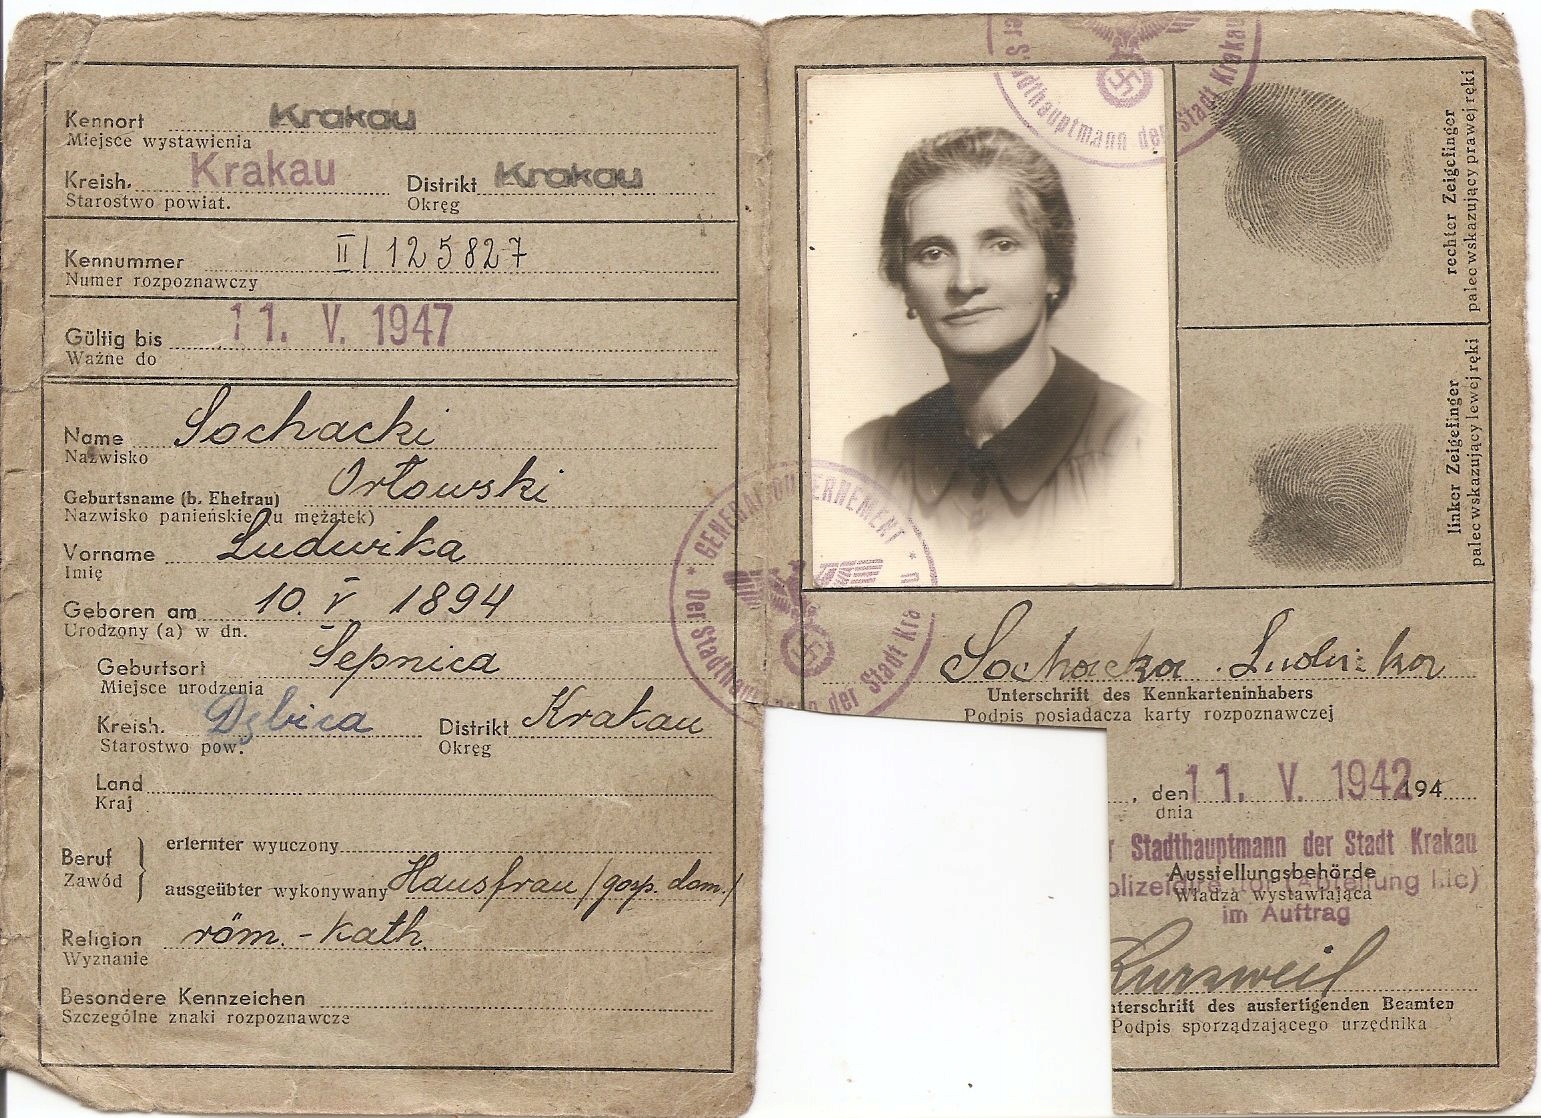 Kennort Krakau
Miejsce wystawienia
Kreish. Krakau Distrikt Krakau
Starostwo powiat. Okręg
Kennummer II/125827
Numer rozpoznawczy
Gültig bis 11. V. 1947
Ważne do
Name Sochacki
Nazwisko
Orłowski
Geburtsname (b. Ehefrau)
Nazwisko panieńskie (u mężatek)
Vorname Ludwika
Imię
Geboren am 10. V 1894
Urodzony (a) w dn.
Geburtsort Sepnica
Miejsce urodzenia
Kreish. Dębica Distrikt Krakau
Starostwo pow. Okręg
Land
Kraj
Beruf
Zawód
erlernter wyuczony
ausgeübter wykonywany Hausfrau /gosp. dom./
Religion röm.-kath.
Wyznanie
Besondere Kennzeichen
Szczególne znaki rozpoznawcze
der Stadthauptmann der Stadt Krakau
rechter Zeigefinger
palec wskazujący prawej ręki
linker Zeigefinger
palec wskazujący lewej ręki
* GENERALGOUVERNEMENT *
Der Stadthauptmann der Stadt Kra
Sochacka Ludwika
Unterschrift des Kennkarteninhabers
Podpis posiadacza karty rozpoznawczej
, den 11. V. 1942 194
dnia
r Stadthauptmann der Stadt Krakau
Ausstellungsbehörde
olizeidirektor (Abteilung IIc)
Władza wystawiająca
im Auftrag
Kurzweil
nterschrift des ausfertigenden Beamten
Podpis sporządzającego urzędnika